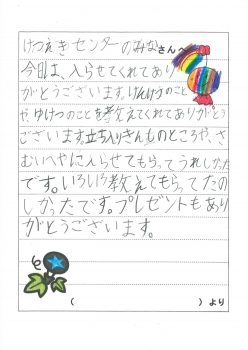 けつえきセンターのみなさんへ
今日は、入らせてくれてあり
がとうございます。けんけつのこと
や、ゆけつのことを教えてくれてありがとう
ございます。立ち入りきんものところや、さ
むいへやに入らせてもらってうれしかった
です。いろいろ教えてもらってたの
しかったです。プレゼントもあり
がとうございます。
(　　　　　　　　)より